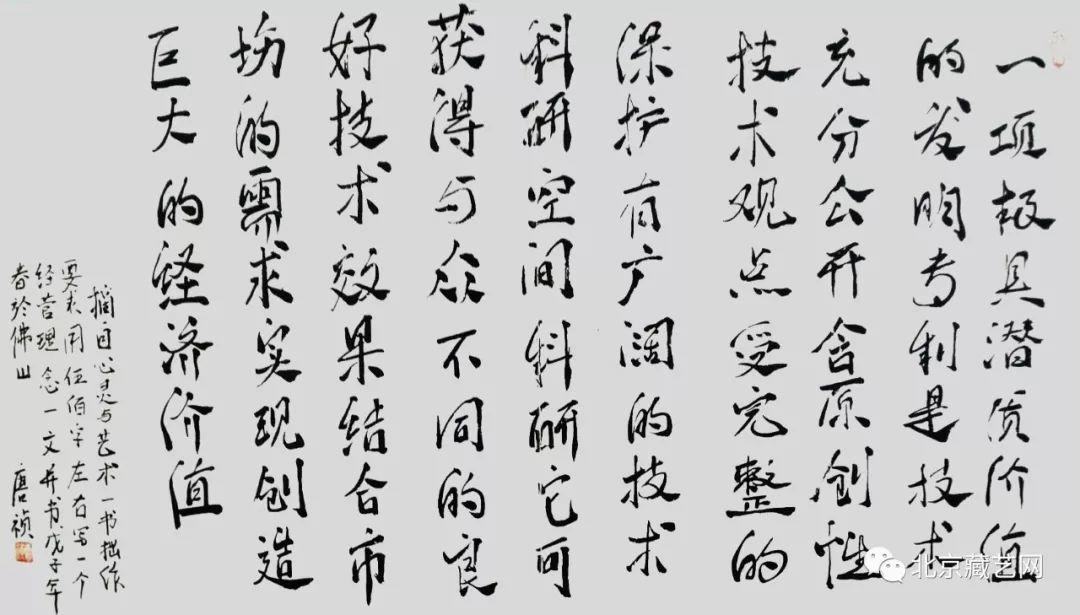 一项极具潜质价值
的发明专利是技术
充分公开含原创性
技术观点受完整的
保护有广阔的技术
科研空间科研它可
获得与众不同的良
好技术效果结合市
场的需求实现创造
巨大的经济价值
摘自心灵与艺术一书拙作
要求用伍佰字左右写一个
经营理念一文并书戊子年
春於佛山
唐祯
北京藏艺网